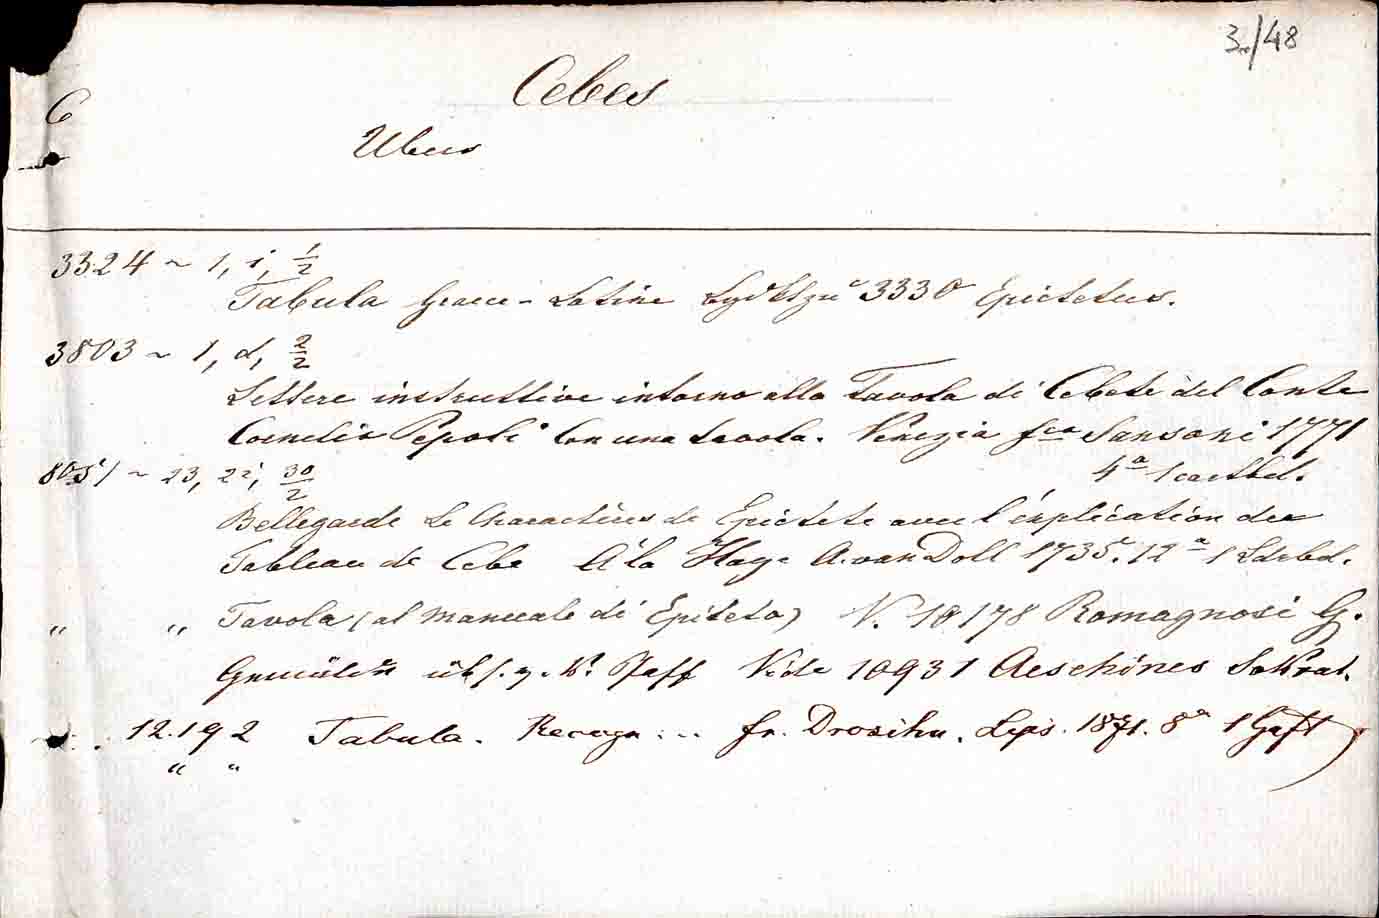 3/48
C
Cebes
3324 ~ 1, i, 1/2
Tabula Graece-Latine 3330 Epictetus.
3803 ~ 1, d, 2/2
Lettere instruttive intorno alla Tavola di Cebete del Conte
Cornelio Pepoli Con una tavola. Venezia fca Sansoni 1771
4a 1 cartbd.
8051 ~ 23, 22, 30/2
Bellegarde Le Charactères de Epictéte avec l'explication du
Tableau de Cebe A la Haye A. van Doll 1735. 12a 1 Ldrbd.
" " Tavola (al manuale di Epiteto) N. 10178 Romagnosi G.
Gemälde übs. v. Pfaff Vide 10931 Aeschines Sokrat.
12.192 Tabula. Recogn ... fr. Drosihn. Lips. 1871. 8a 1 Heft
" "